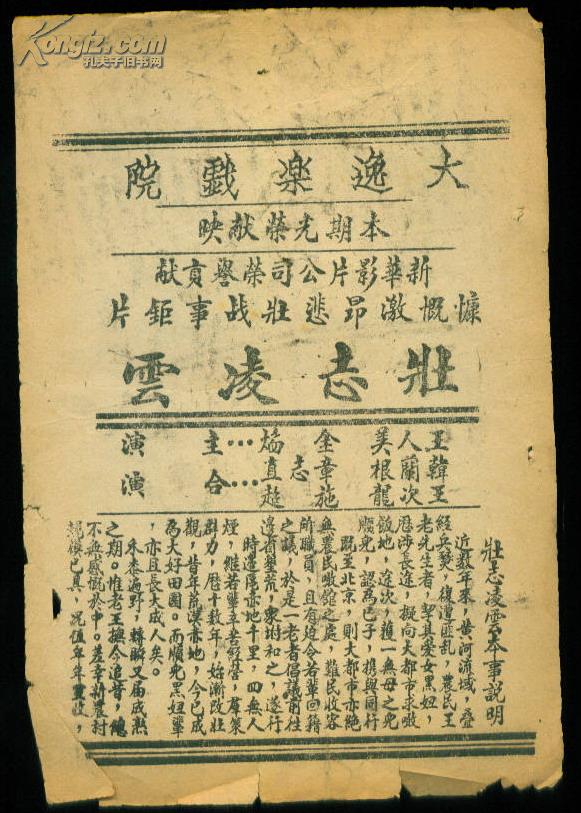 Kongfz.com
孔夫子旧书网
大逸樂戲院
本期光榮献映
新華影片公司榮譽貢献
慷慨激昂悲壯战事鉅片
壯志凌雲
王人美 金焰…主演
韓蘭根 章志直
王次龍 施超…合演
壯志凌雲本事説明
近数年來，黄河流域，叠
經兵燹，復遭匪乱，農民王
老先生者，挈其愛女黑妞，
歷涉長途，擬向大都市求噉
飯地，途次，獲一無母之兒
順兒，認為已子，携與同行
既至北京，則大都市亦絶
無農民噉飯之處，難民收容
所職員，且有迫令若輩回籍
之議，於是一老者倡議前往
邊省墾荒，衆咐和之，遂行
時邊區赤地千里，四無人
煙，雖若輩辛苦經營，羣策
群力，歷十数年，始漸改壯
觀，昔年荒漠赤地，今已成
為大好田園。而順兒黑妞輩
，亦且長大成人矣。
禾黍遍野，轉瞬又届成熟
之期。惟老王撫今追昔，總
不無感慨於中。差幸新農村
規模已具，况值年年豐收，